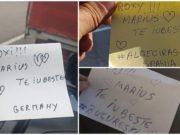 XI!!!
ARIUS
TE IUBESTE
GERMANY
ROXY!!!
MARIUS
TE IUBESTE
#ALGECIRAS
MARIUS
TE IUBESTE